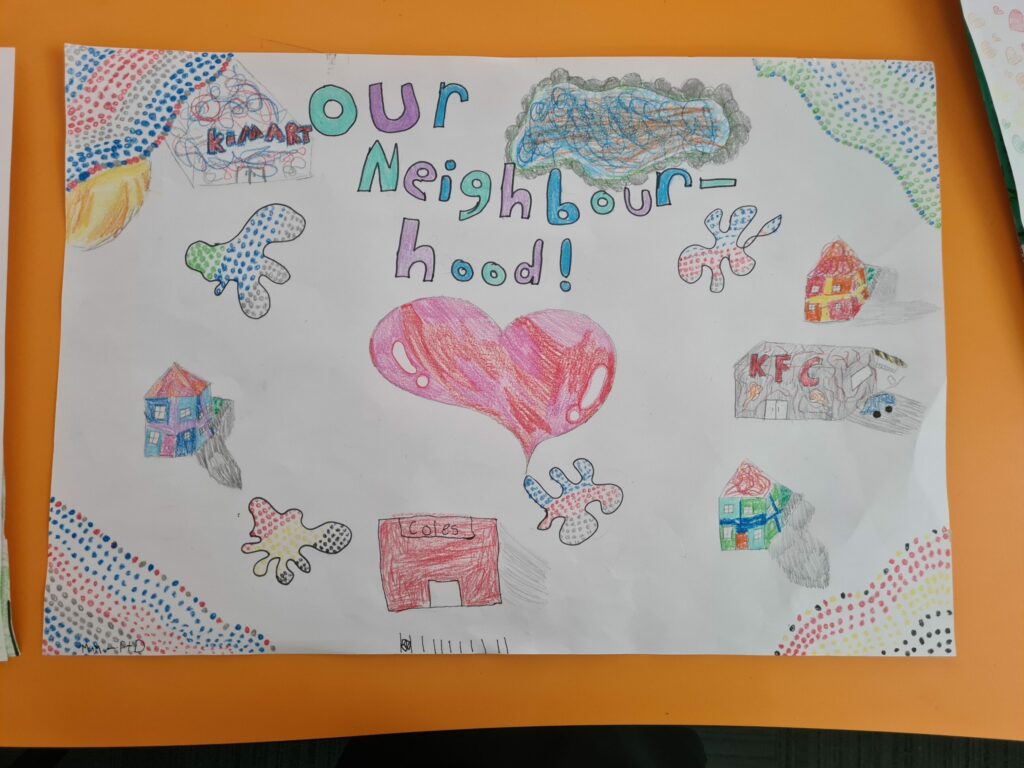 our
Neighbour-
hood!
KMART
KFC
Coles